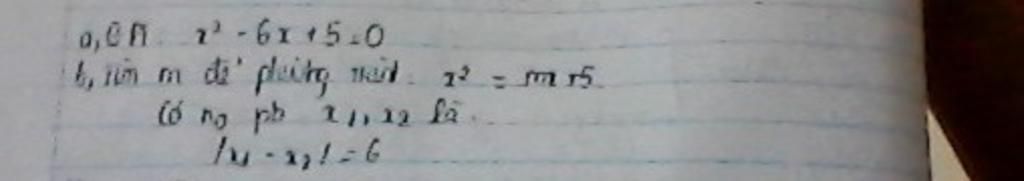 a, GPT: x² - 6x + 5 = 0
b, tìm m để phương trình x² = m + 5
Có no pb x₁, x₂ là
|x₁ - x₂| = 6